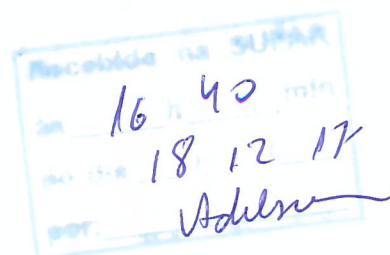 Recebido na SUPAR
às 16 h 40 min
no dia 18 12 17
por: